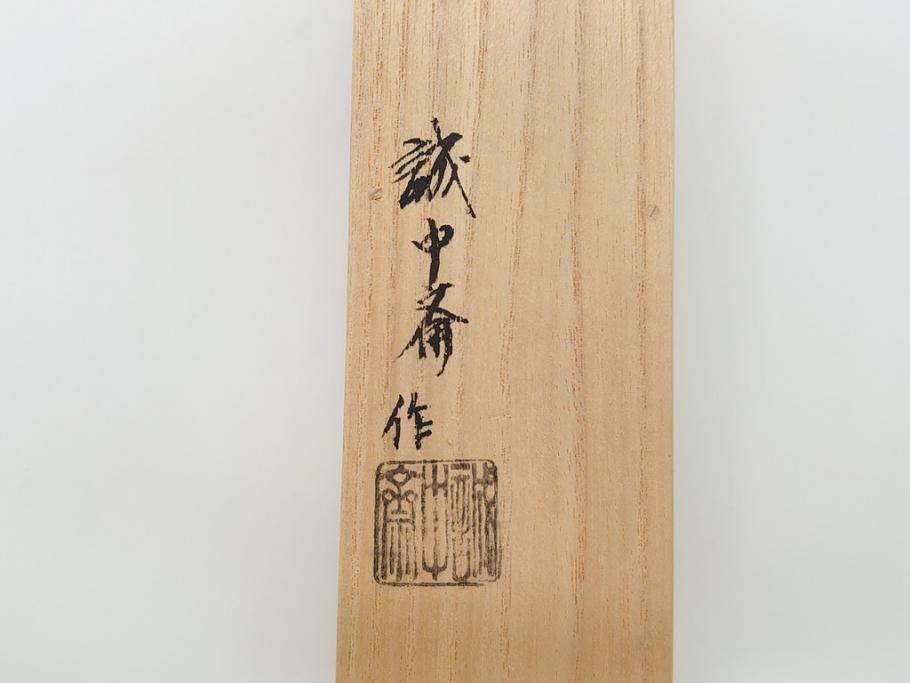 誠中斎作
誠中齋